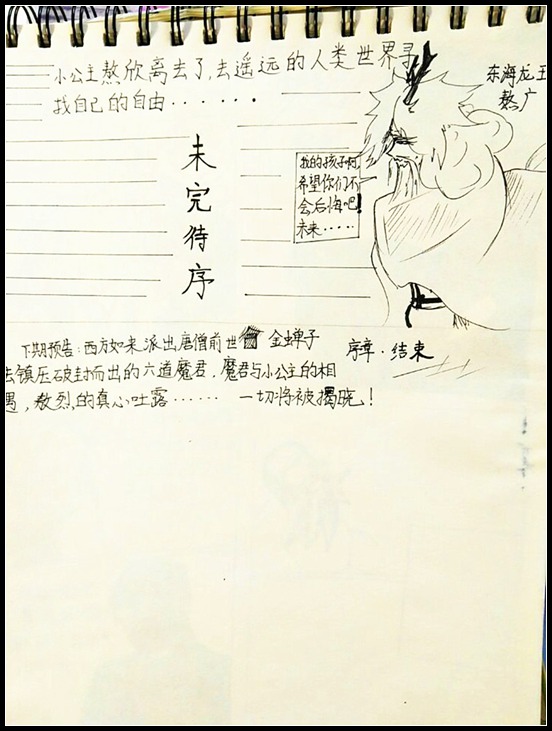 小公主熬欣离去了,去遥远的人类世界寻
找自己的自由······
东海龙王
熬广
未完待序
我的孩子啊,
希望你们不
会后悔吧!
未来·····
下期预告:西方如来派出唐僧前世 金蝉子
去镇压破封而出的六道魔君,魔君与小公主的相
遇,敖烈的真心吐露······ 一切将被揭晓!
序章·结束